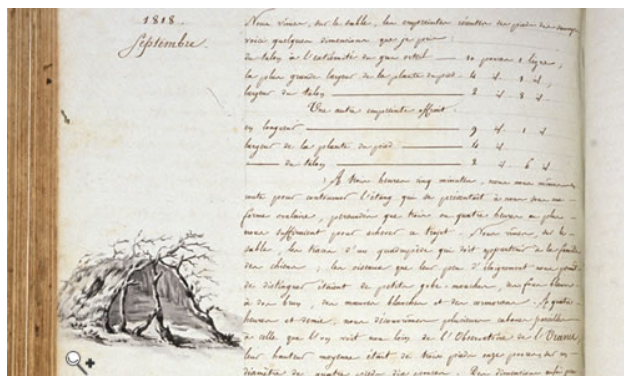 1818.
Septembre.
Nous vîmes, sur le sable, les empreintes récentes des pieds de sauvages
voici quelques dimensions que je pris:
du talon à l'extrémité du gros orteil — 10 pouces 1 ligne,
la plus grande largeur de la plante du pied — 4 id. 1 id.
largeur du talon — 2 id. 8 id.
Une autre empreinte offrit.
en longueur — 9 id. 1 id.
largeur de la plante du pied — 4 id.
— du talon — 2 id. 6 id.
À trois heures cinq minutes, nous nous mîmes en
route pour contourner l'étang qui se présentait à nous sous une
forme ovalaire, persuadés que trois ou quatre heures au plus
nous suffiraient pour achever ce trajet. Nous vîmes, sur le
sable, les traces d'un quadrupède qui doit appartenir à la famille
des chiens; les oiseaux que leur peu d'éloignement nous permit
de distinguer étaient de petits gobe-mouches,
à dos brun, des mauves blanches et des cormorans. À quatre
heures et demie, nous découvrîmes plusieurs cabanes pareilles
à celle que l'on voit non loin de l'Observatoire de l'Uranie,
leur hauteur moyenne était de trois pieds onze pouces, sur un
diamètre de quatre pieds dix pouces. Des dimensions